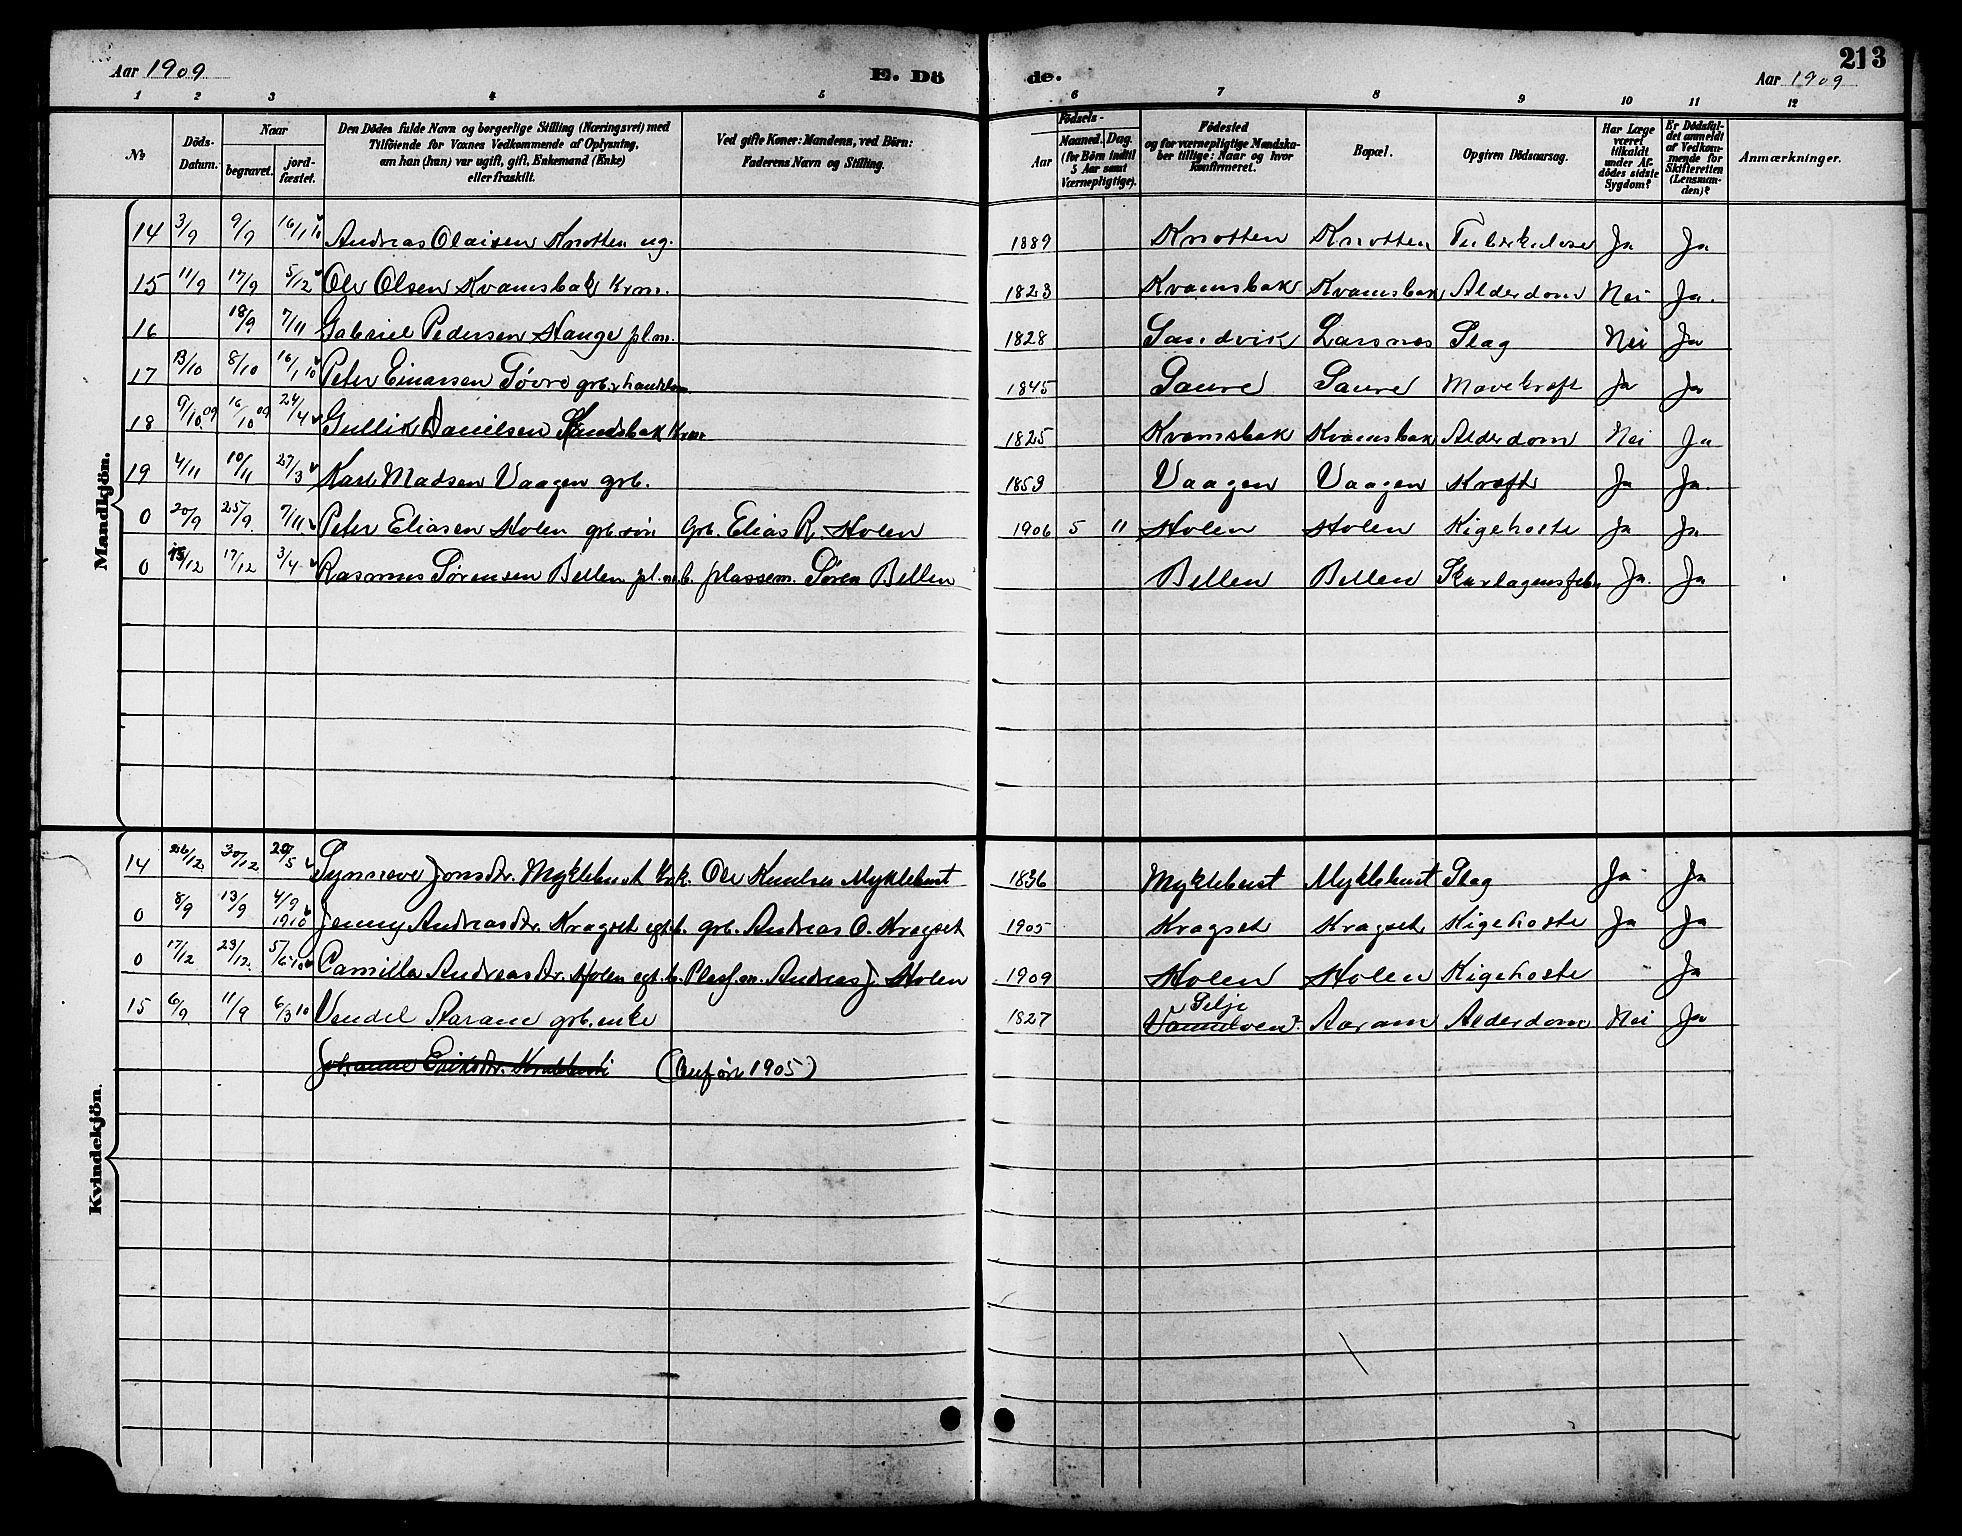 213
Aar 1909 E. Dö de. Aar 1909
1 2 3 4 5 6 7 8 9 10 11 12
No
Döds-Datum.
Naar
begravet. jord-fæstet.
Den Dödes fulde Navn og borgerlige Stilling (Næringsvei) med
Tilföiende for Voxnes Vedkommende af Oplysning,
om han (hun) var ugift, gift, Enkemand (Enke)
eller fraskilt.
Ved gifte Koner: Mandens, ved Börn:
Faderens Navn og Stilling.
Födsels-
Aar Maaned. Dag.
(for Börn indtil
5 Aar samt
Værnepligtige).
Födested
og for værnepligtige Mandska-
ber tillige: Naar og hvor
konfirmeret.
Bopæl.
Opgiven Dödsaarsag.
Har Læge
været
tilkaldt
under Af-
dödes sidste
Sygdom?
Er Dödsfal-
det anmeldt
af Vedkom-
mende for
Skifteretten
(Lensman-
den)?
Anmærkninger.
Mandkjön.
14 3/9 9/9 16/1 10 Andreas Olaisen Knotten ug. 1889 Knotten Knotten Tuberkulose Ja Ja
15 11/9 17/9 5/12 Ole Olsen Kvamsbak Krm. 1823 Kvamsbak Kvamsbak Alderdom Nei Ja.
16 18/9 7/11 Gabriel Pedersen Hauge pl.m. 1828 Sandvik Larsnes Slag Nei Ja
17 13/10 8/10 16/1 10 Peter Einarsen grb. 1845 Saure Saure Mavekræft Ja Ja
18 9/10 09 16/10 09 24/4 Gullik Danielsen 1825 Kvamsbak Kvamsbak Alderdom Nei Ja
19 4/11 10/11 27/3 Karl Madsen Vaagen grb. 1859 Vaagen Vaagen Kræft Ja Ja
0 20/9 25/9 7/11 Peter Eliasen Holen grb. søn Grb. Elias R. Holen 1906 5 11 Holen Holen Kigehoste Ja Ja
0 13/12 17/12 3/4 Rasmus Sørensen Bellen pl.m. b. plassem. Søren Bellen Bellen Bellen Skarlagensfeber Ja. Ja
Kvindekjön.
14 26/12 30/12 20/5 Synneve Jonsdtr. Myklebust k.k. Ole Knutsen Myklebust 1836 Myklebust Myklebust Slag Ja Ja
0 8/9 13/9 4/9 1910 Jenny Andreasdtr. Kragset egt.b. grb. Andreas O. Kragset 1905 Kragset Kragset Kigehoste Ja Ja
0 17/12 23/12 5/6 10 Camilla Andreasdtr. Holen egt.b. Plasf.m. Andreas J. Holen 1909 Holen Holen Kigehoste Ja
15 6/9 11/9 6/3 10 Vendel Aaram grb. enke 1827 Silje Vanelven? Aaram Alderdom Nei Ja
Johanne Eriksdtr. (Anfør 1905)